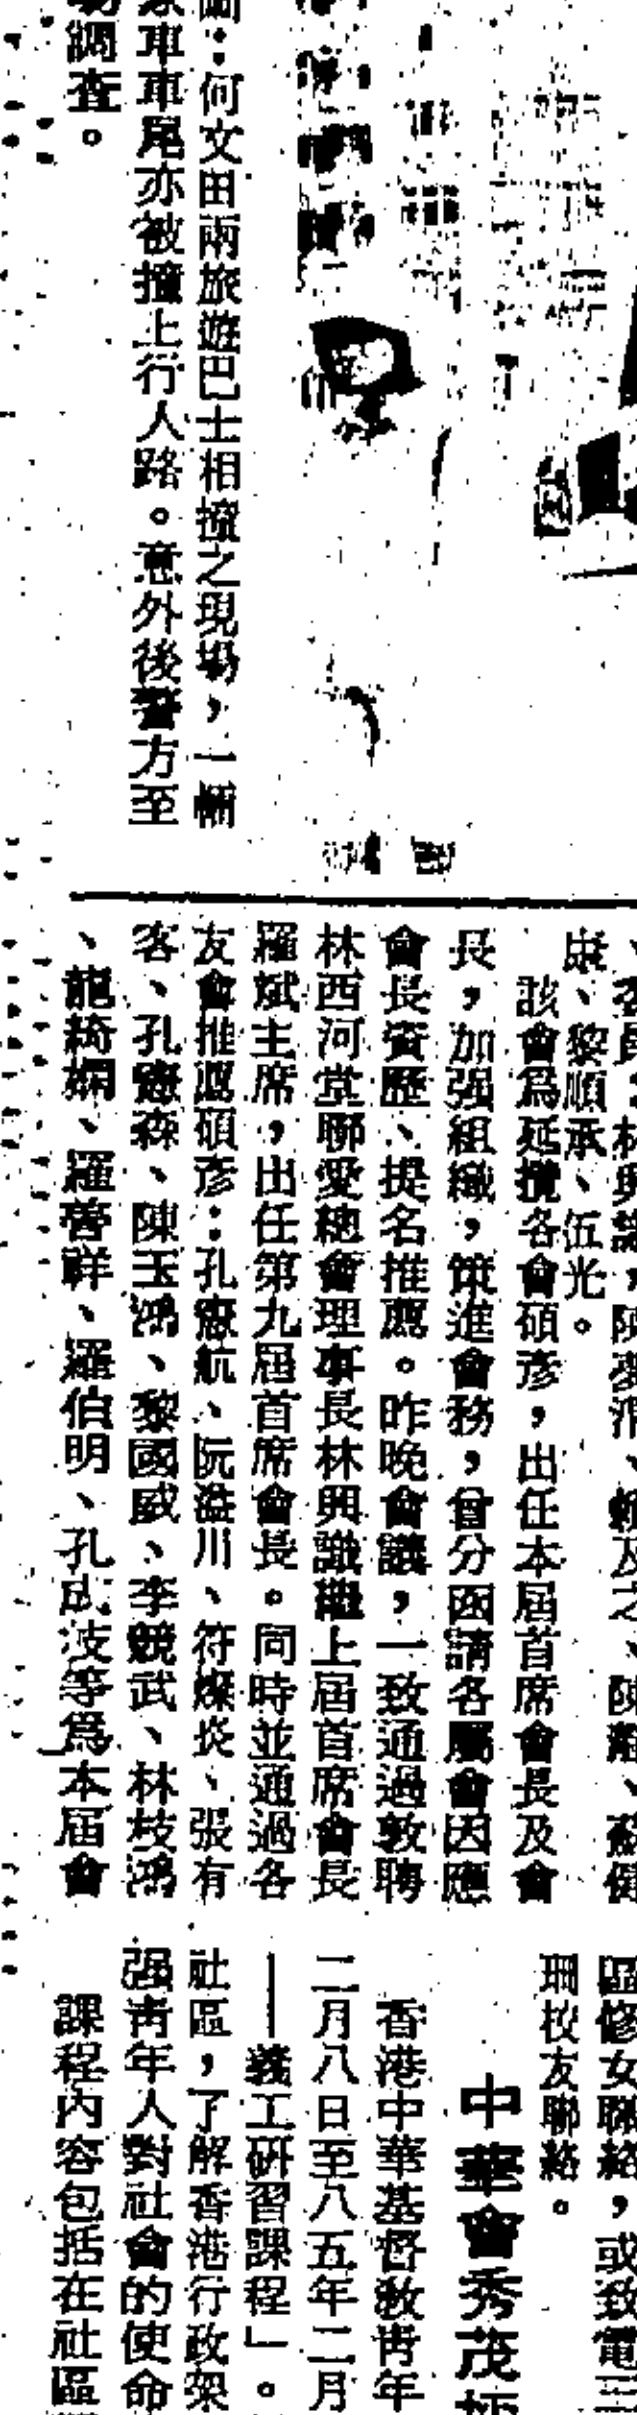 ：何文田兩旅遊巴士相撞之現場，一輛
家車車尾亦被撞上行人路。意外後警方至
場調查。
康、黎順承、伍光。
該會為延攬各會碩彥，出任本屆首席會長及會
長，加强組織，策進會務，曾分函請各屬會因應
會長資歷、提名推薦。昨晚會議，一致通過敦聘
林西河堂聯愛總會理事長林興識繼上屆首席會長
羅斌主席，出任第九屆首席會長。同時並通過各
友會推薦碩彥：孔憲航、阮溢川、符燦炎、張有
客、孔憲森、陳玉鴻、黎國威、李競武、林枝鴻
、龍綺嫻、羅善祥、羅伯明、孔成波等為本屆會
區修女聯絡，或致電三
珊校友聯絡。
中華會秀茂
香港中華基督教青年
二月八日至八五年二月
——義工研習課程」。
社區，了解香港行政架
强青年人對社會的使命
課程內容包括在社區